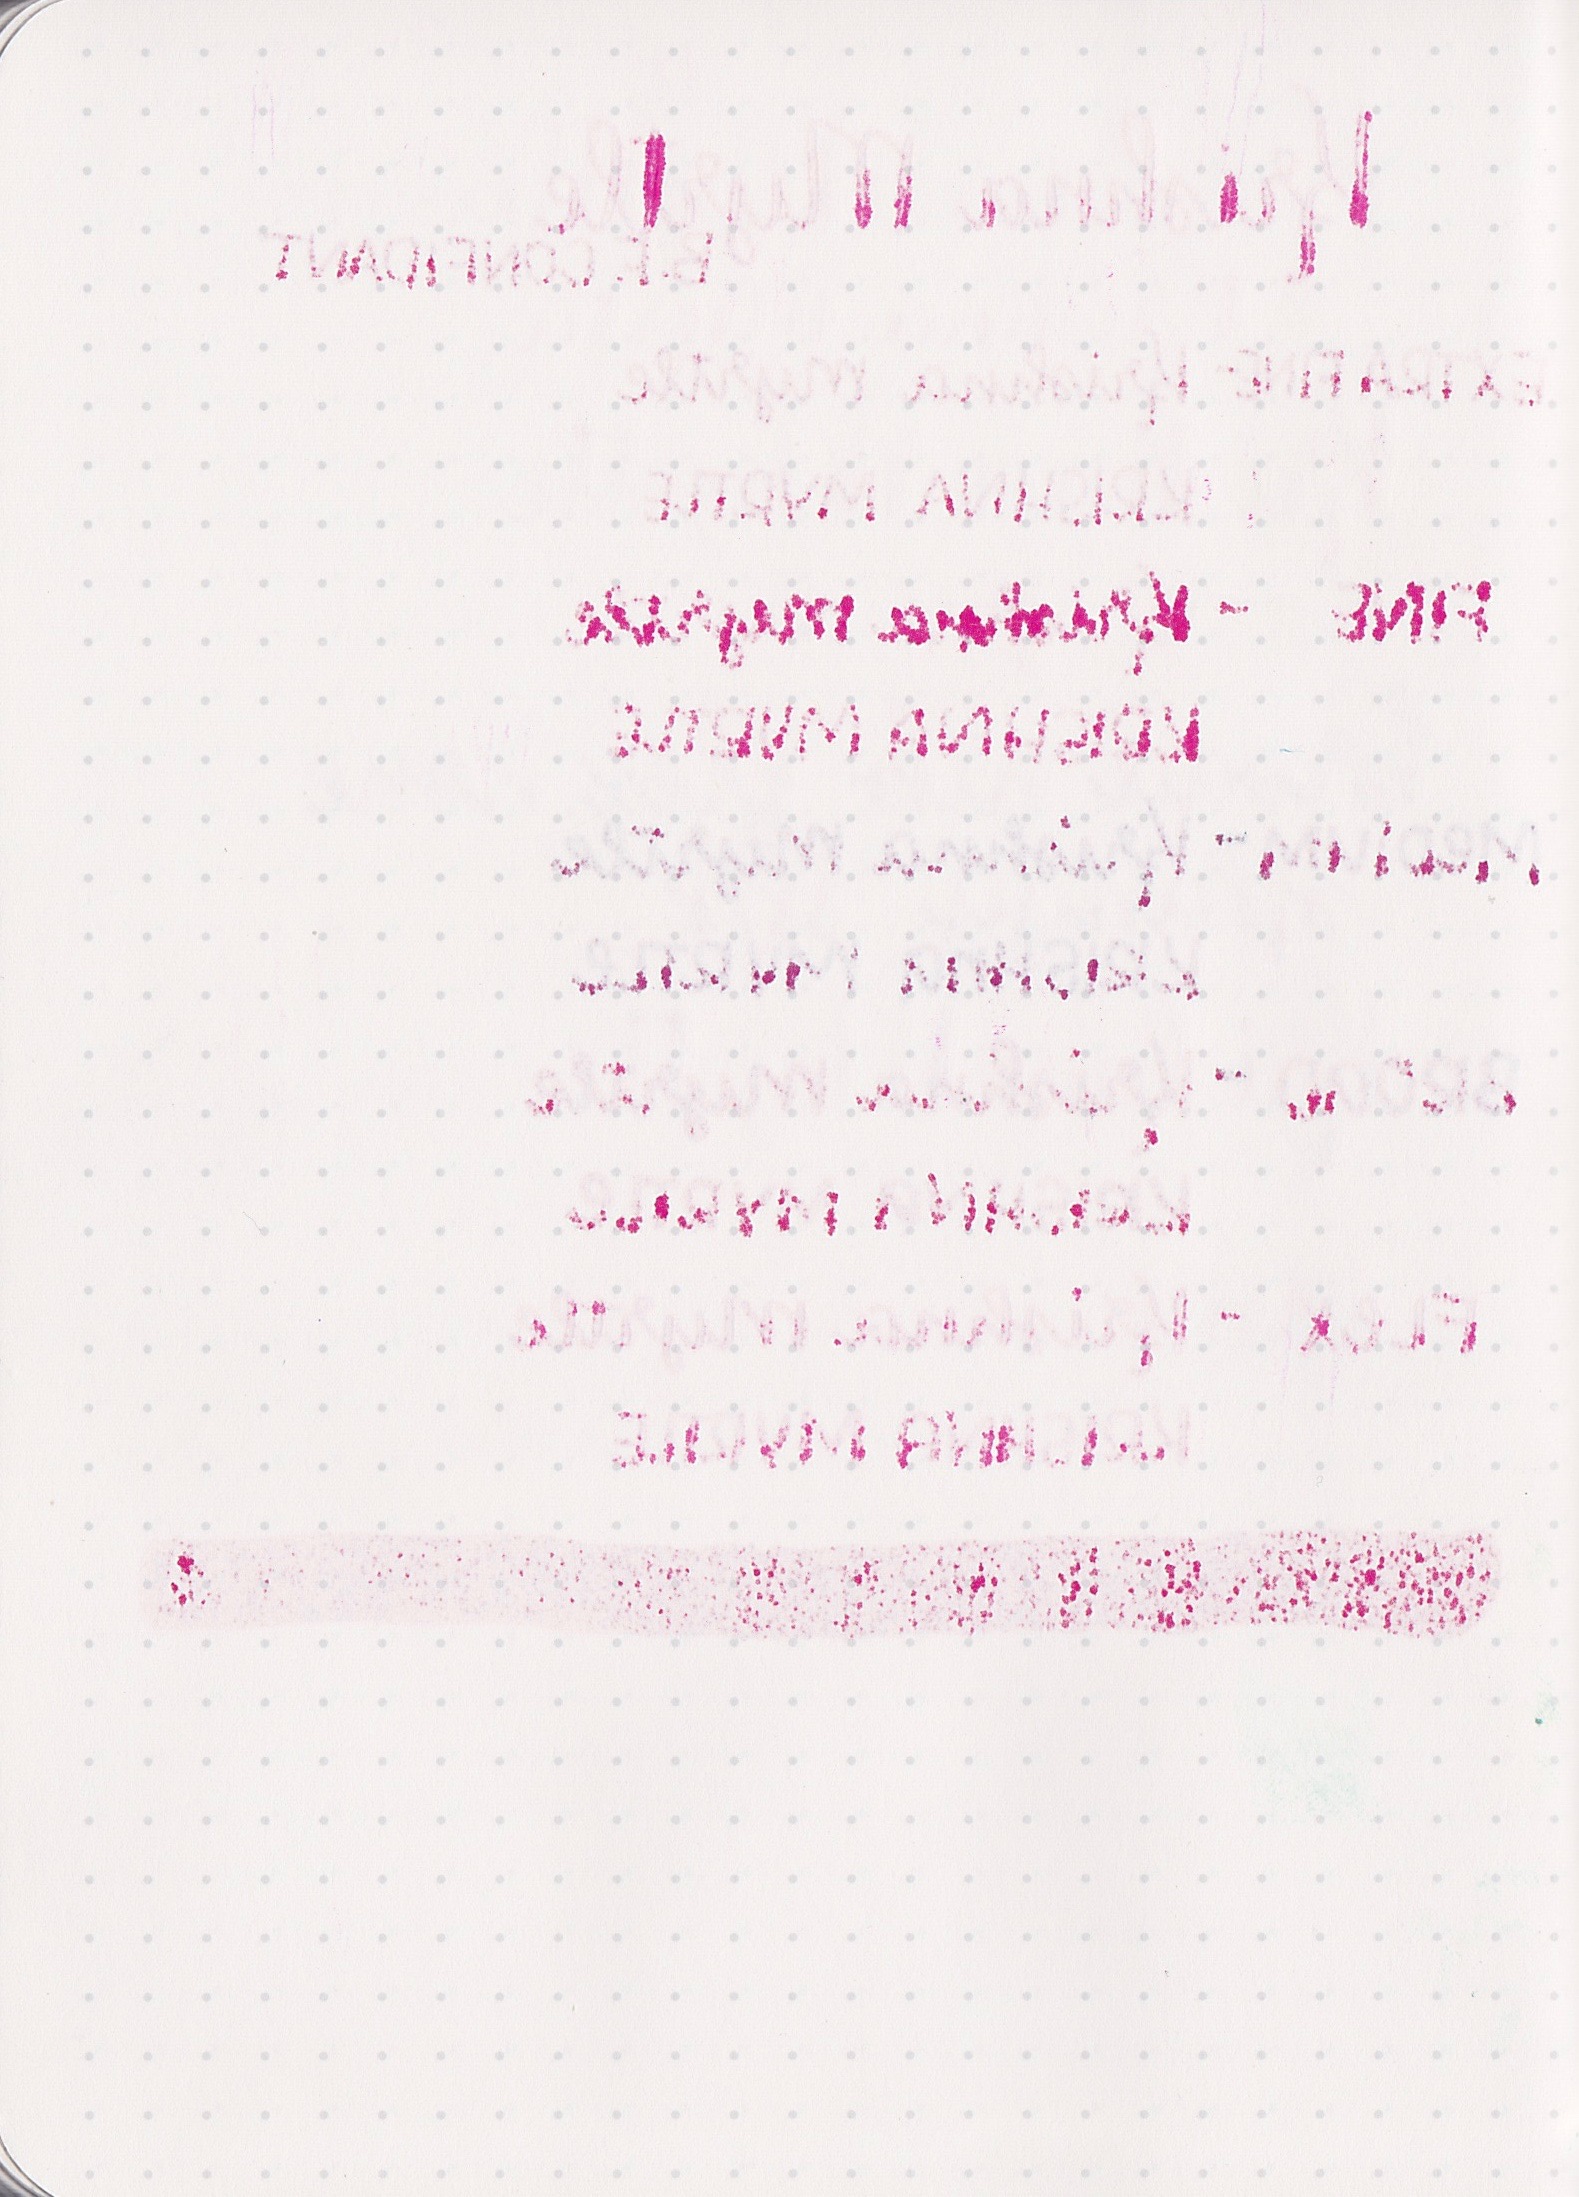 Krishna Myrtle
PET. CONFIDANT
EXTRA FINE - Krishna myrtle
KRISHNA MYRTLE
FINE - Krishna myrtle
KRISHNA MYRTLE
MEDIUM - Krishna myrtle
KRISHNA MYRTLE
BROAD - Krishna myrtle
KRISHNA MYRTLE
FLEX - Krishna myrtle
KRISHNA MYRTLE